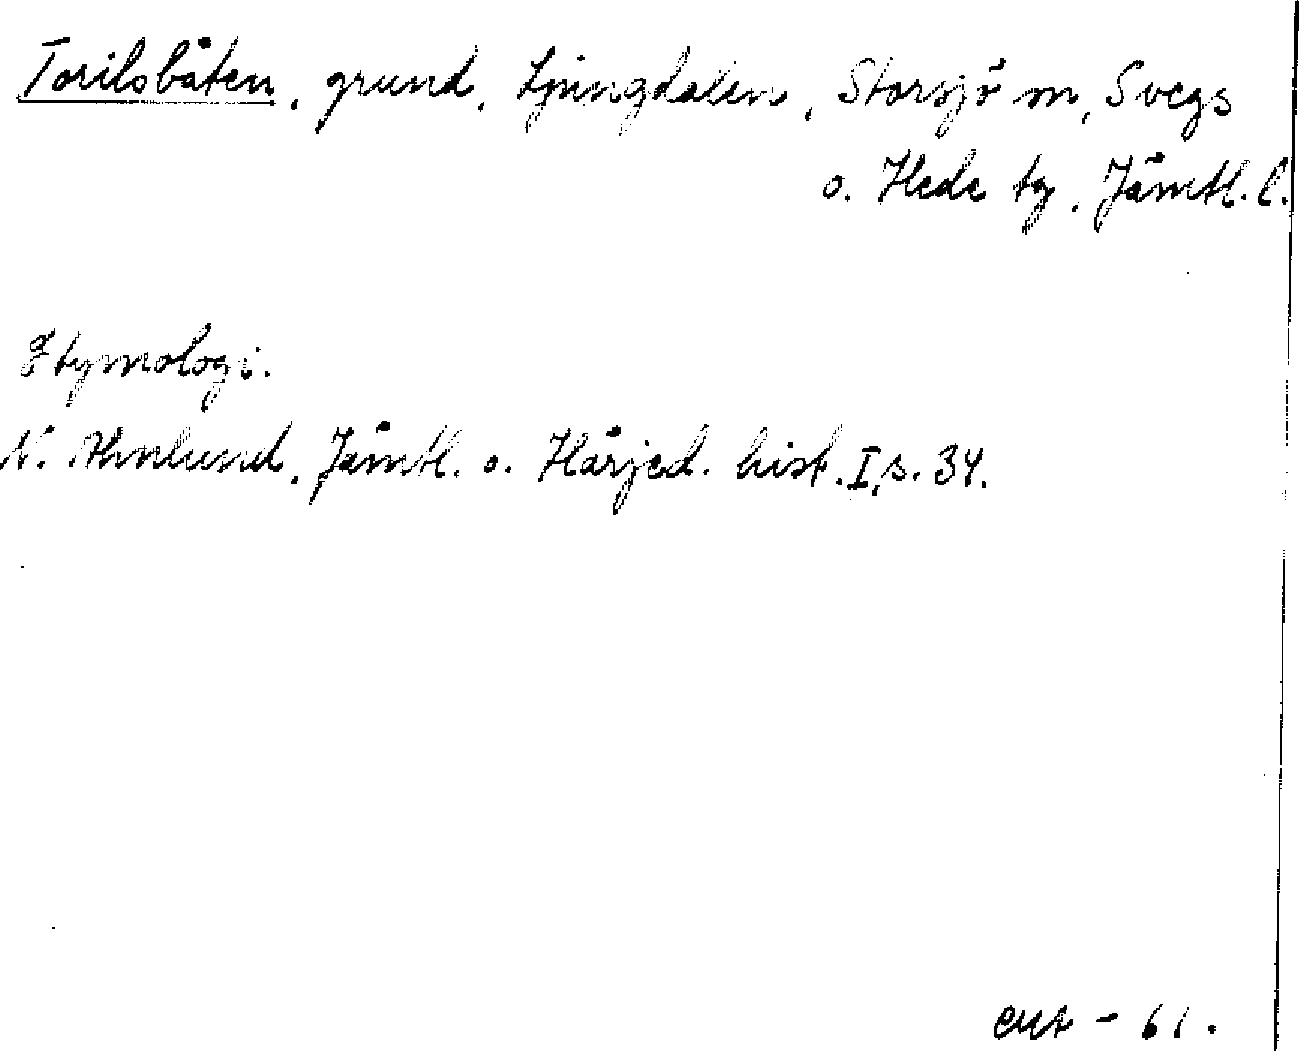 Torilsbåten, grund, Ljungdalen, Storsjö sn, Svegs
o. Hede tg, Jämtl. l.
Etymologi.
N. Ahnlund, Jämtl. o. Härjed. hist. I, s. 34.
- 61.